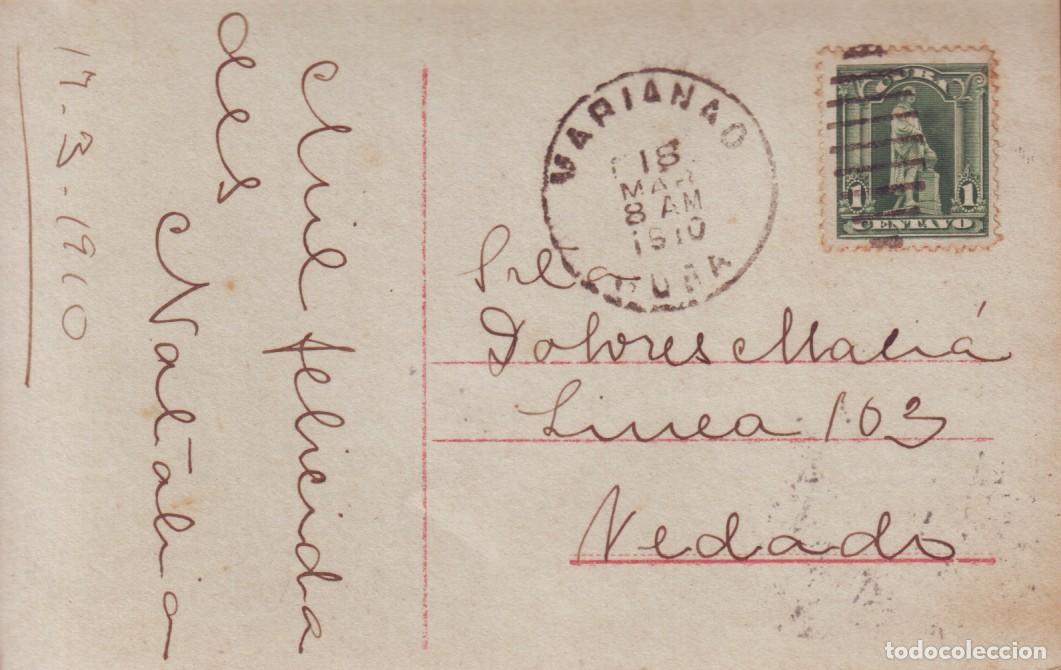 Mil felicida
des
Natalia
17-3-1910
MARIANAO
18
MAR
8 AM
1910
CUBA
CUBA
1 1
CENTAVO
Srta
Dolores Maciá
Linea 103
Vedado
todocoleccion